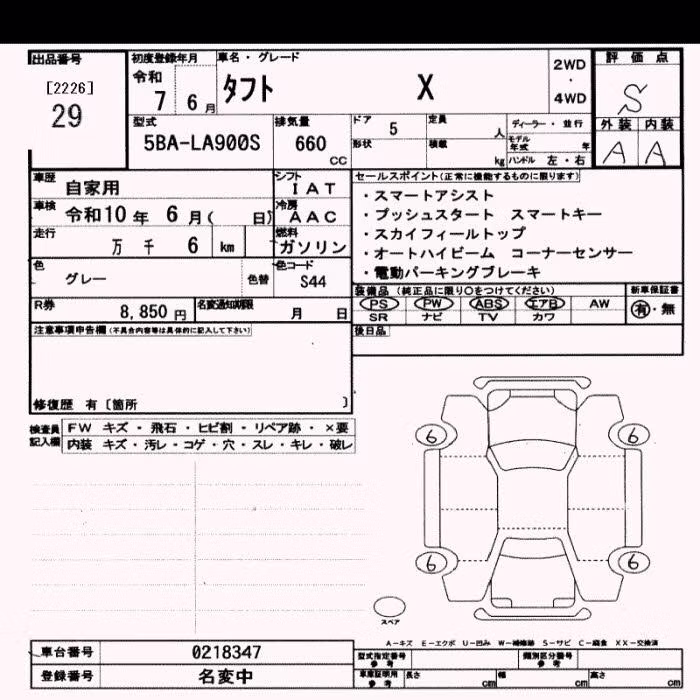 出品番号
[2226]
29
初度登録年月
令和 7 6月
車名・グレード
タフト X
2WD
・
4WD
評価点
S
外装 内装
A A
型式
5BA-LA900S
排気量
660
CC
ドア 5
定員 人
形状
積載 kg
ディーラー・並行
モデル年式 年
ハンドル 左・右
車歴
自家用
シフト
IAT
車検
令和10年 6月( 日)
冷房
AAC
走行
万 千 6 km
燃料
ガソリン
色
グレー
色替
色コード
S44
セールスポイント(正常に機能するものに限ります)
・スマートアシスト
・プッシュスタート スマートキー
・スカイフィールトップ
・オートハイビーム コーナーセンサー
・電動パーキングブレーキ
R券
8,850円
名変通知期限
月 日
装備品(純正品に限り○をつけてください)
PS PW ABS エアB AW
SR ナビ TV カワ
新車保証書
有・無
後日品
注意事項申告欄(不具合内容等は具体的に記入して下さい)
修復歴 有〔箇所 〕
検査員記入欄
FW キズ・飛石・ヒビ割・リペア跡・×要
内装 キズ・汚レ・コゲ・穴・スレ・キレ・破レ
6 6
6 6
スペア
A-キズ E-エクボ U-凹み W-補修跡 S-サビ C-腐食 XX-交換済
車台番号
0218347
登録番号
名変中
型式指定番号
参考
類別区分番号
参考
車庫証明用
参考
長さ cm
幅 cm
高さ cm